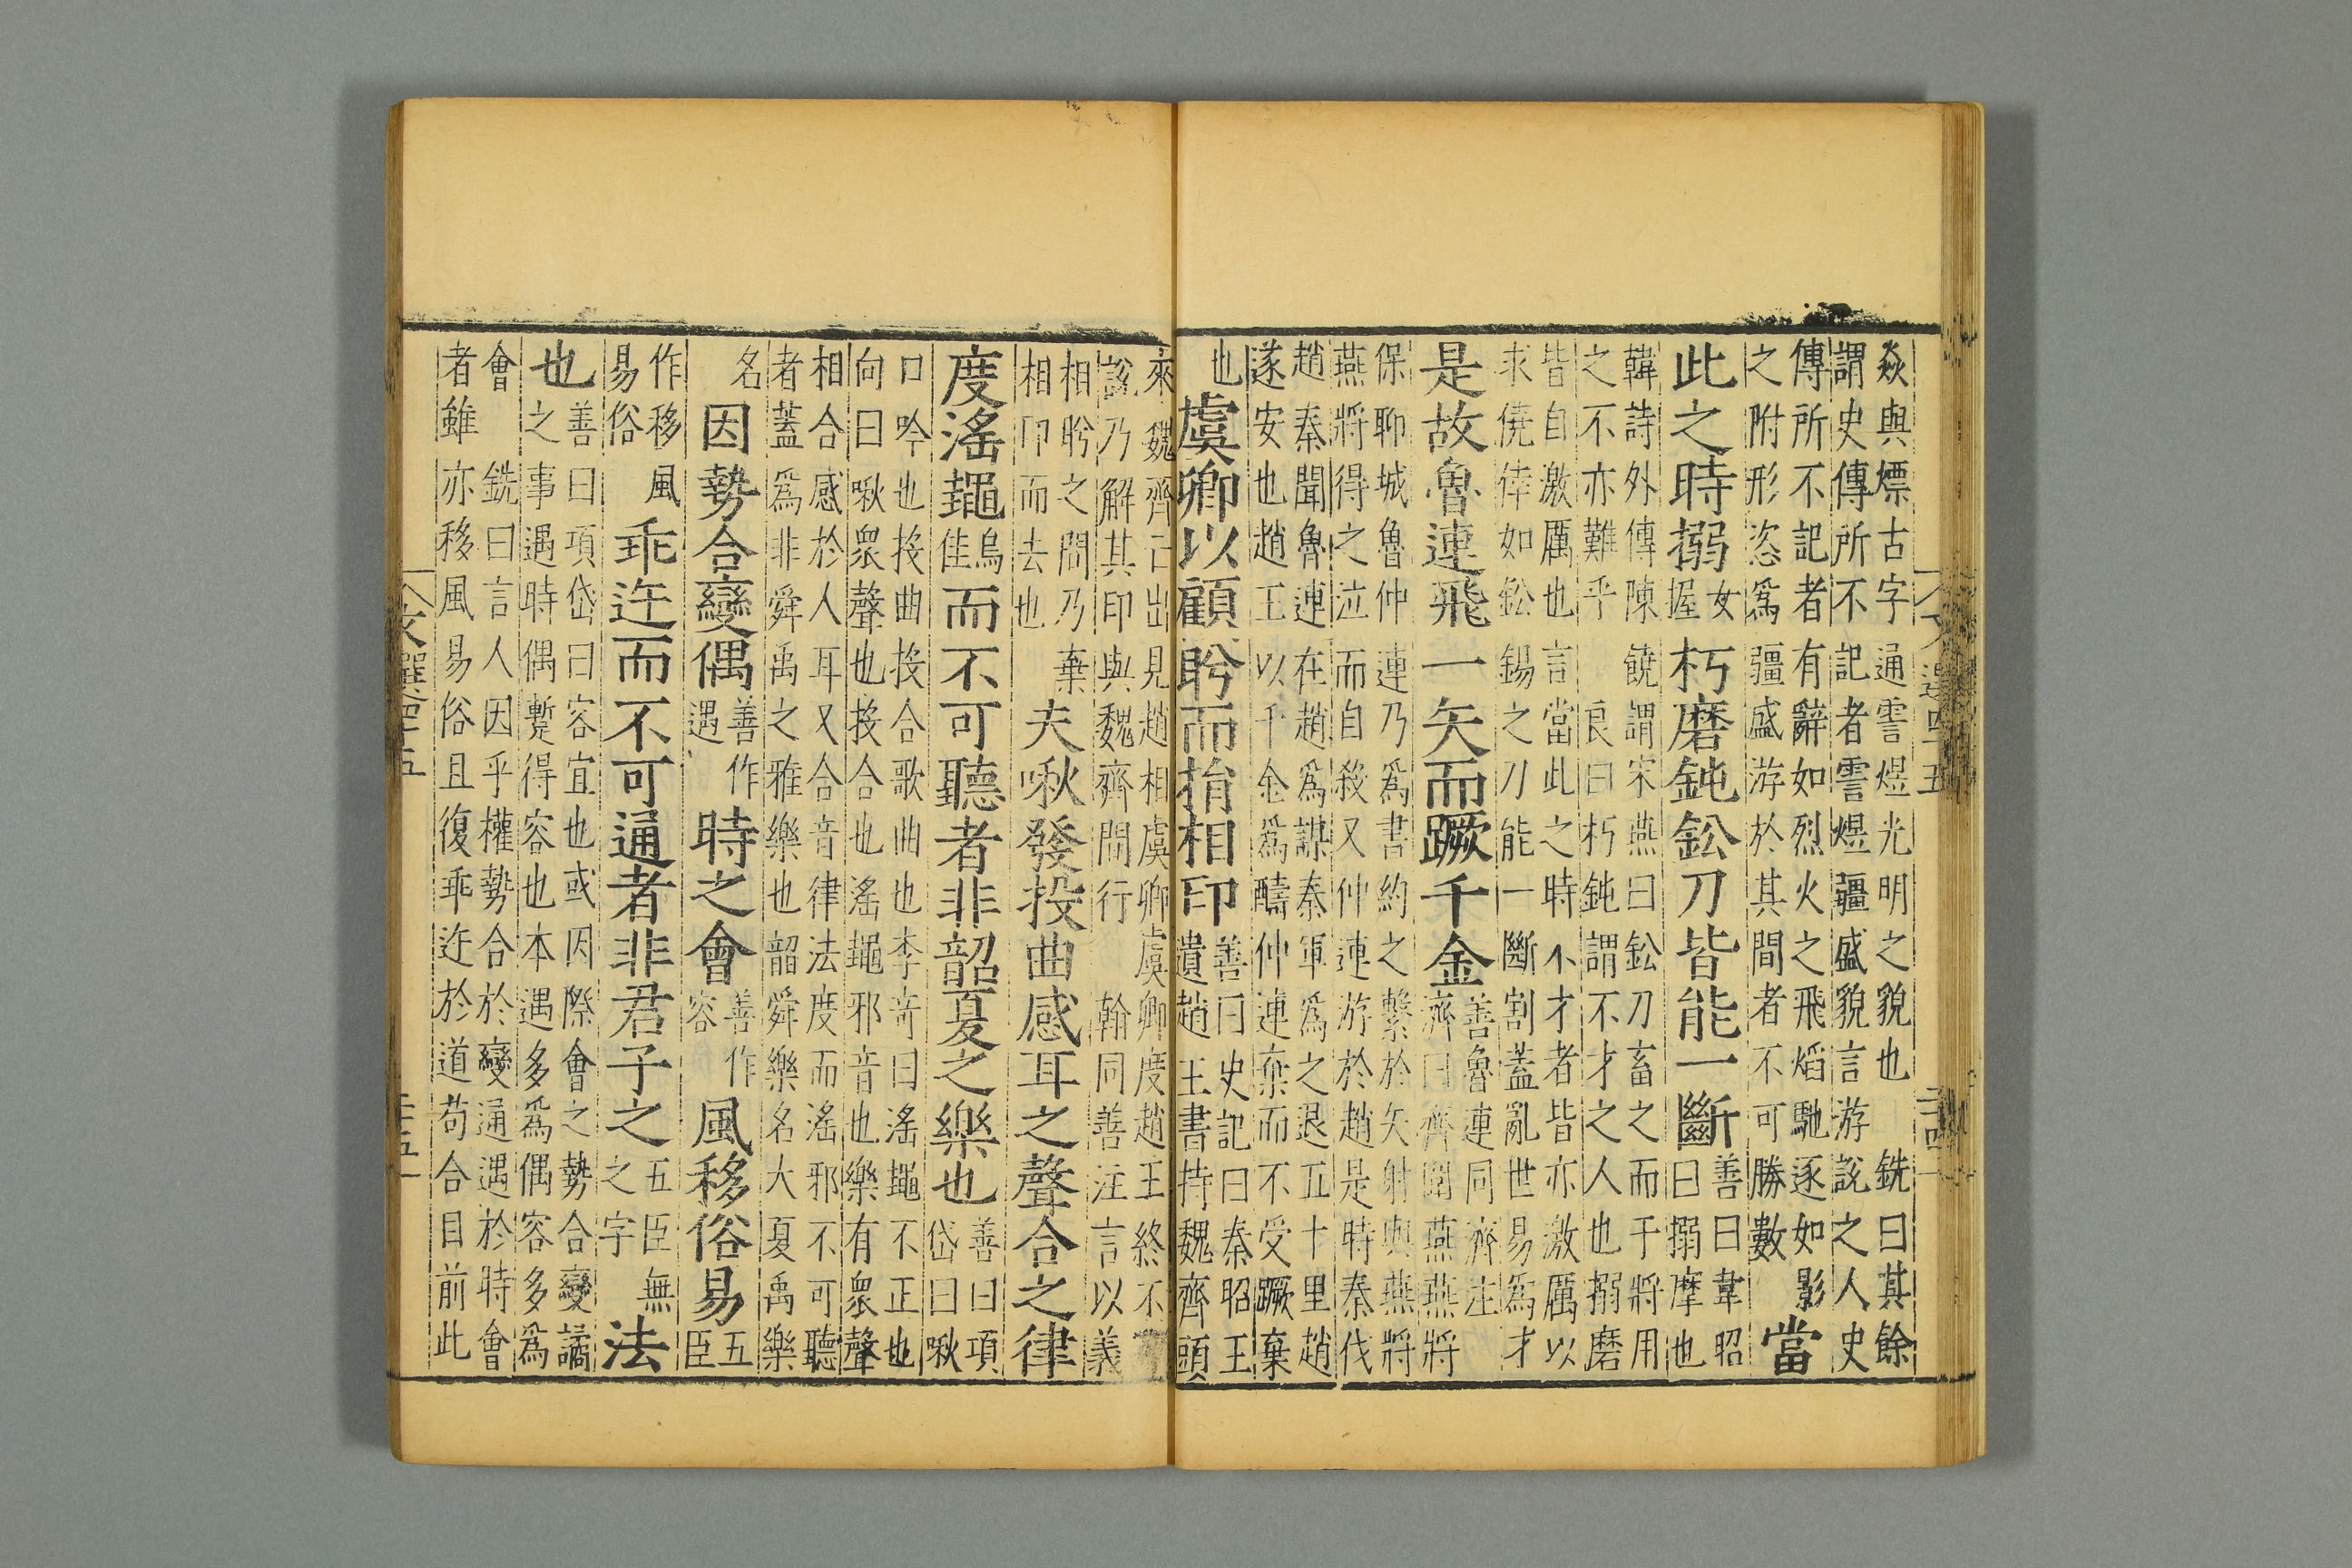 焱與熛古字通霅煜光明之貌也 銑曰其餘
謂史傳所不記者霅煜疆盛貌言游說之人史
傳所不記者有辭如烈火之飛熖馳逐如影
之附形恣爲疆盛游於其間者不可勝數 當
此之時搦女握朽磨鈍鈆刀皆能一斷善曰韋昭曰搦摩也
韓詩外傳陳饒謂宋燕曰鈆刀畜之而干將用
之不亦難乎 良曰朽鈍謂不才之人也搦磨
皆自激厲也言當此之時不才者皆亦激厲以
求僥倖如鈆錫之刀能一斷割蓋亂世易爲才
是故魯連飛一矢而蹶千金善魯連同濟注濟曰齊圍燕燕將
保聊城魯仲連乃爲書約之繫於矢射與燕將
燕將得之泣而自殺又仲連游於趙是時秦伐
趙秦聞魯連在趙爲謀秦軍爲之退五十里趙
遂安也趙王以千金爲醻仲連棄而不受蹶棄
也虞卿以顧眄而捐相印善曰史記曰秦昭王遺趙王書持魏齊頭
來魏齊已出見趙相虞卿虞卿度趙王終不
說乃解其印與魏齊間行 翰同善注言以義
相眄之間乃棄相印而去也夫啾發投曲感耳之聲合之律
度滛䵷烏佳而不可聽者非韶夏之樂也善曰項岱曰啾
口吟也投曲投合歌曲也李奇曰滛䵷不正也
向曰啾衆聲也投合也滛䵷邪音也樂有衆聲
相合感於人耳又合音律法度而滛邪不可聽
者蓋爲非舜禹之雅樂也韶舜樂名大夏禹樂
名因勢合變偶善作遇時之會善作容風移俗易五臣
作移風易俗乖迕而不可通者非君子之五臣無之字法
也善曰項岱曰容宜也或因際會之勢合變譎
之事遇時偶蹔得容也本遇多爲偶容多爲
會 銑曰言人因乎權勢合於變通遇於時會
者雖亦移風易俗且復乖迕於道苟合目前此
文選卷四十五